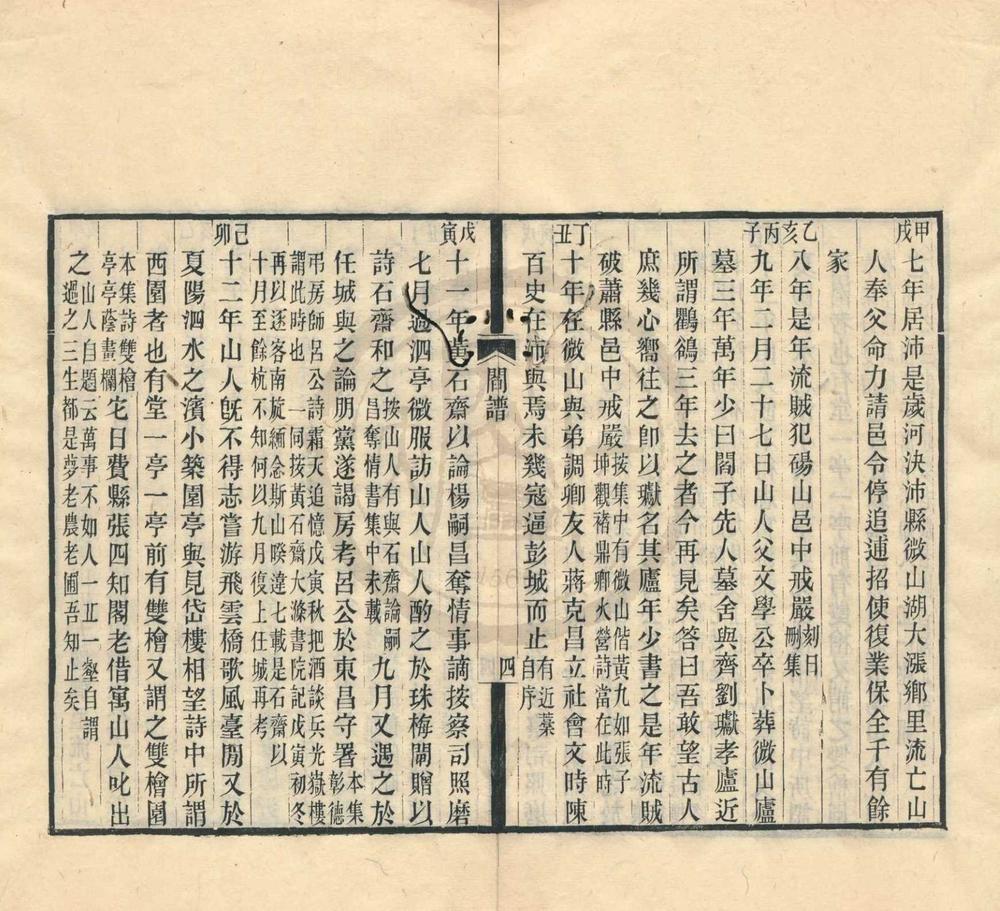 甲戌
七年居沛是歲河決沛縣微山湖大漲鄉里流亡山
人奉父命力請邑令停追逋招使復業保全千有餘
家
乙亥
八年是年流賊犯碭山邑中戒嚴刻日刪集
丙子
九年二月二十七日山人父文學公卒卜葬微山廬
墓三年萬年少曰閻子先人墓舍與齊劉瓛孝廬近
所謂鸜鵒三年去之者今再見矣答曰吾敢望古人
庶幾心嚮往之卽以瓛名其廬年少書之是年流賊
破蕭縣邑中戒嚴按集中有微山偕黃九如張子坤觀褚鼎卿火營詩當在此時
丁丑
十年在微山與弟調卿友人蔣克昌立社會文時陳
百史在沛與焉未幾寇逼彭城而止有近藁自序
閻譜
四
戊寅
十一年黃石齋以論楊嗣昌奪情事謫按察司照磨
七月過泗亭微服訪山人山人酌之於珠梅閘贈以
詩石齋和之按山人有與石齋論嗣昌奪情書集中未載九月又遇之於
任城與之論朋黨遂謁房考呂公於東昌守署本集彰德
弔房師呂公詩霜天追憶戊寅秋把酒談兵光嶽樓
謂此時也　一同按黃石齋大滌書院記戊寅初冬
再以逐客南旋緬念斯山暌違七載是石齋以
十月至餘杭不知何以九月復上任城再考
己卯
十二年山人旣不得志嘗游飛雲橋歌風臺閒又於
夏陽泗水之濱小築園亭與見岱樓相望詩中所謂
西園者也有堂一亭一亭前有雙檜又謂之雙檜園
本集詩雙檜亭亭蔭畫欄宅日費縣張四知閣老借寓山人叱出
之山人自題云萬事不如人一丘一壑自謂
之過之三生都是夢老農老圃吾知止矣